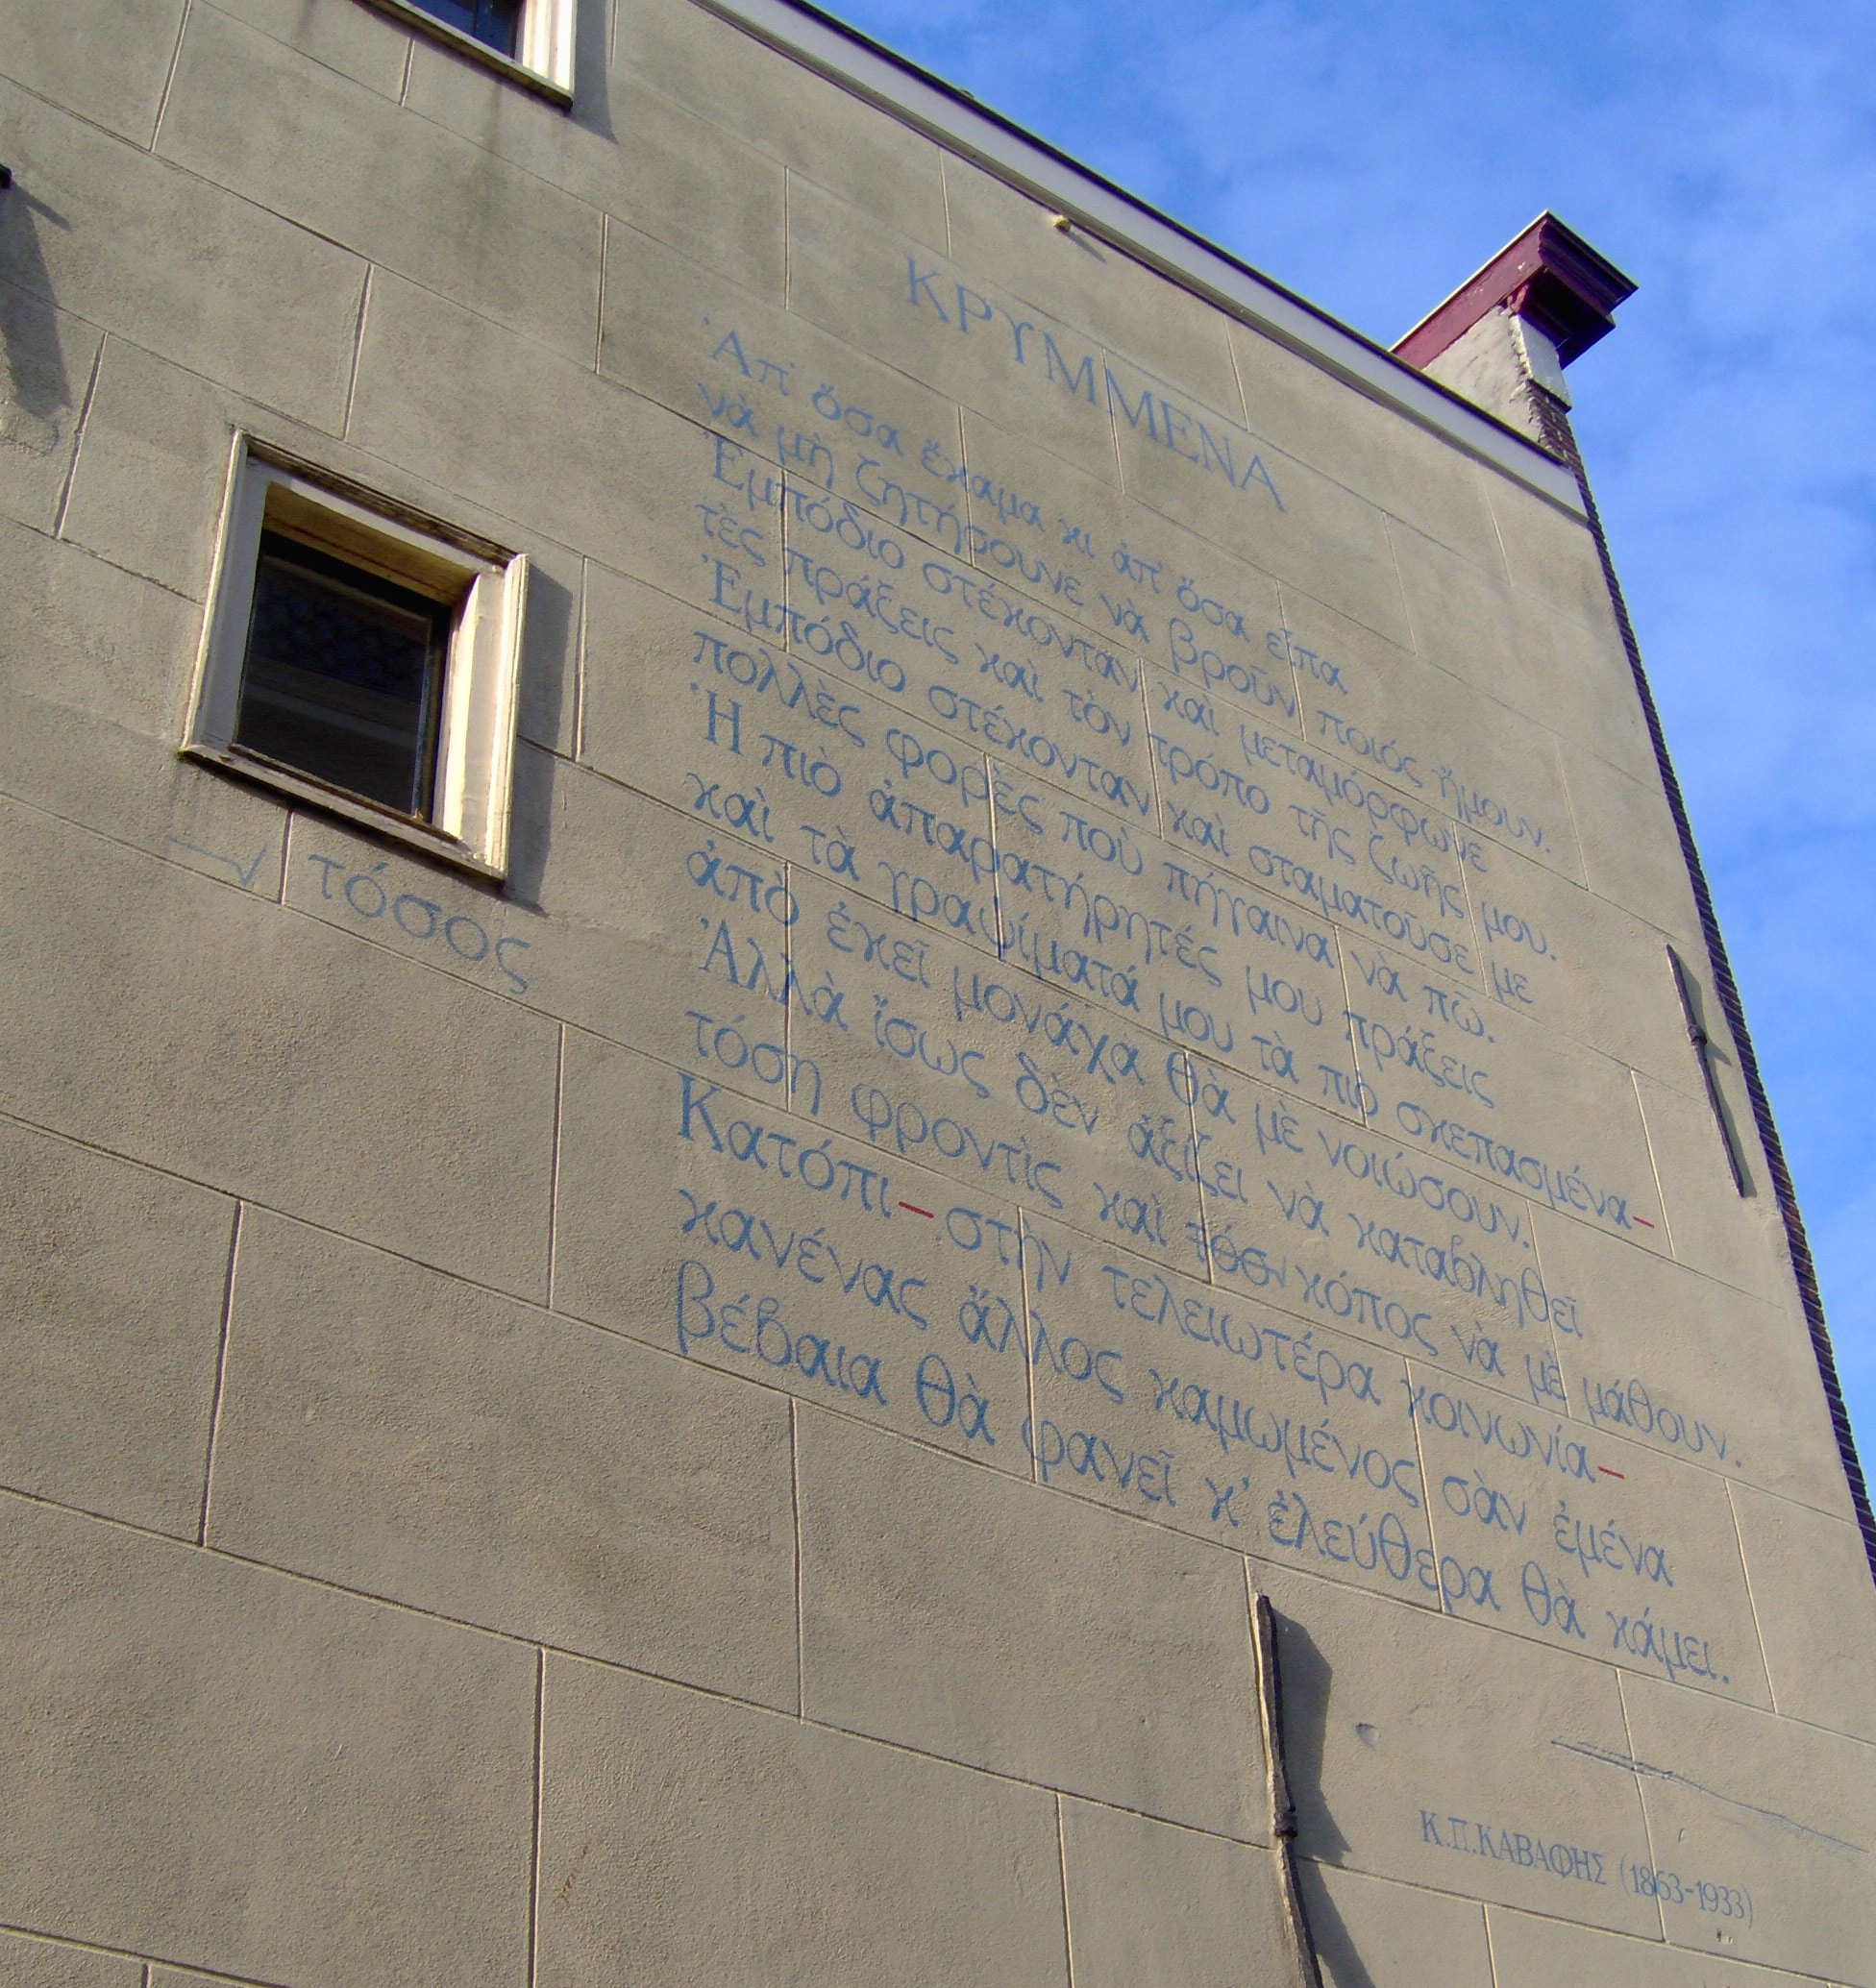 ΚΡΥΜΜΕΝΑ
Ἀπ' ὅσα ἔκαμα κι ἀπ' ὅσα εἶπα
νὰ μὴ ζητήσουνε νὰ βροῦν ποιός ἤμουν.
Ἐμπόδιο στέκονταν καὶ μεταμόρφωνε
τὲς πράξεις καὶ τὸν τρόπο τῆς ζωῆς μου.
Ἐμπόδιο στέκονταν καὶ σταματοῦσε με
πολλὲς φορὲς ποὺ πήγαινα νὰ πῶ.
Ἡ πιὸ ἀπαρατήρητές μου πράξεις
καὶ τὰ γραψίματά μου τὰ πιὸ σκεπασμένα–
ἀπὸ ἐκεῖ μονάχα θὰ μὲ νοιώσουν.
Ἀλλὰ ἴσως δὲν ἀξίζει νὰ καταβληθεῖ
τόση φροντὶς καὶ τόση κόπος νὰ μὲ μάθουν.
τόσος
Κατόπι–στὴν τελειωτέρα κοινωνία–
κανένας ἄλλος καμωμένος σὰν ἐμένα
βέβαια θὰ φανεῖ κ' ἐλεύθερα θὰ κάμει.
Κ.Π.ΚΑΒΑΦΗΣ (1863-1933)